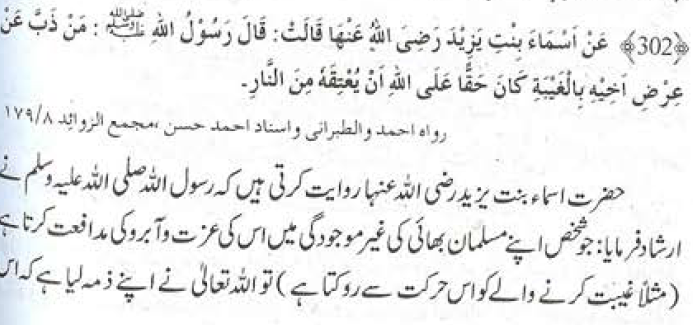 ﴿302﴾ عَنْ اَسْمَاءَ بِنْتِ يَزِيْدَ رَضِىَ اللهُ عَنْهَا قَالَتْ: قَالَ رَسُوْلُ اللهِ ﷺ : مَنْ ذَبَّ عَنْ
عِرْضِ اَخِيْهِ بِالْغَيْبَةِ كَانَ حَقًّا عَلَى اللهِ اَنْ يُعْتِقَهُ مِنَ النَّارِ۔
رواه احمد والطبرانى واسناد احمد حسن ،مجمع الزوائد ١٧٩/٨
حضرت اسماء بنت یزید رضی اللہ عنہا روایت کرتی ہیں کہ رسول اللہ صلی اللہ علیہ وسلم نے
ارشاد فرمایا: جو شخص اپنے مسلمان بھائی کی غیر موجودگی میں اس کی عزت وآبرو کی مدافعت کرتا ہے
(مثلاً غیبت کرنے والے کو اس حرکت سے روکتا ہے) تو اللہ تعالیٰ نے اپنے ذمہ لیا ہے کہ اس